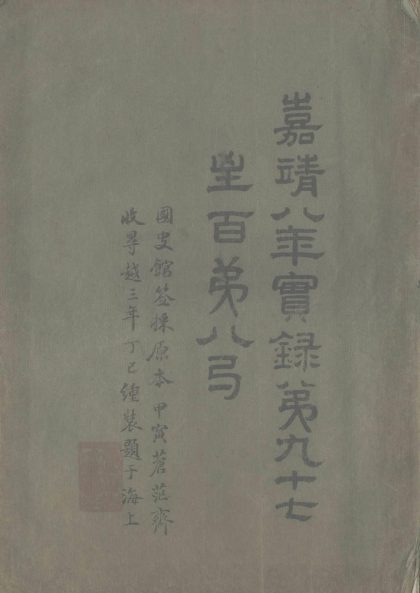 嘉靖八年實録弟九十七
至百弟八弓
國史館簽操原本甲寅蒼茫齋
收㝵越三年丁巳緟裝題于海上